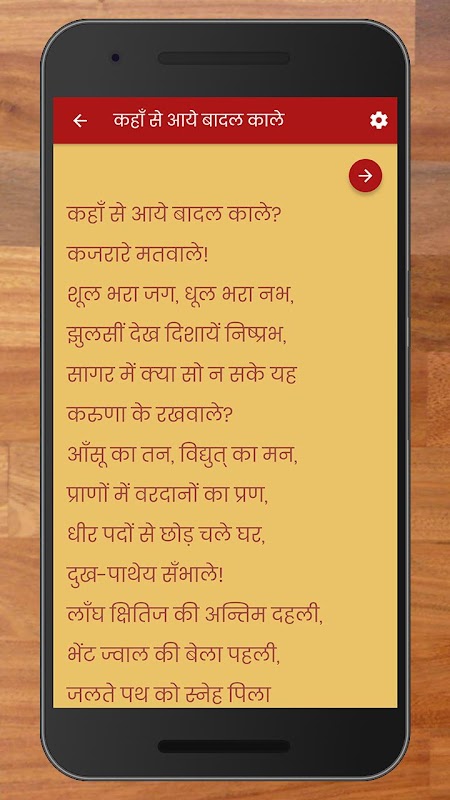 कहाँ से आये बादल काले
कहाँ से आये बादल काले?
कजरारे मतवाले!
शूल भरा जग, धूल भरा नभ,
झुलसीं देख दिशायें निष्प्रभ,
सागर में क्या सो न सके यह
करुणा के रखवाले?
आँसू का तन, विद्युत् का मन,
प्राणों में वरदानों का प्रण,
धीर पदों से छोड़ चले घर,
दुख-पाथेय सँभाले!
लाँघ क्षितिज की अन्तिम दहली,
भेंट ज्वाल की बेला पहली,
जलते पथ को स्नेह पिला